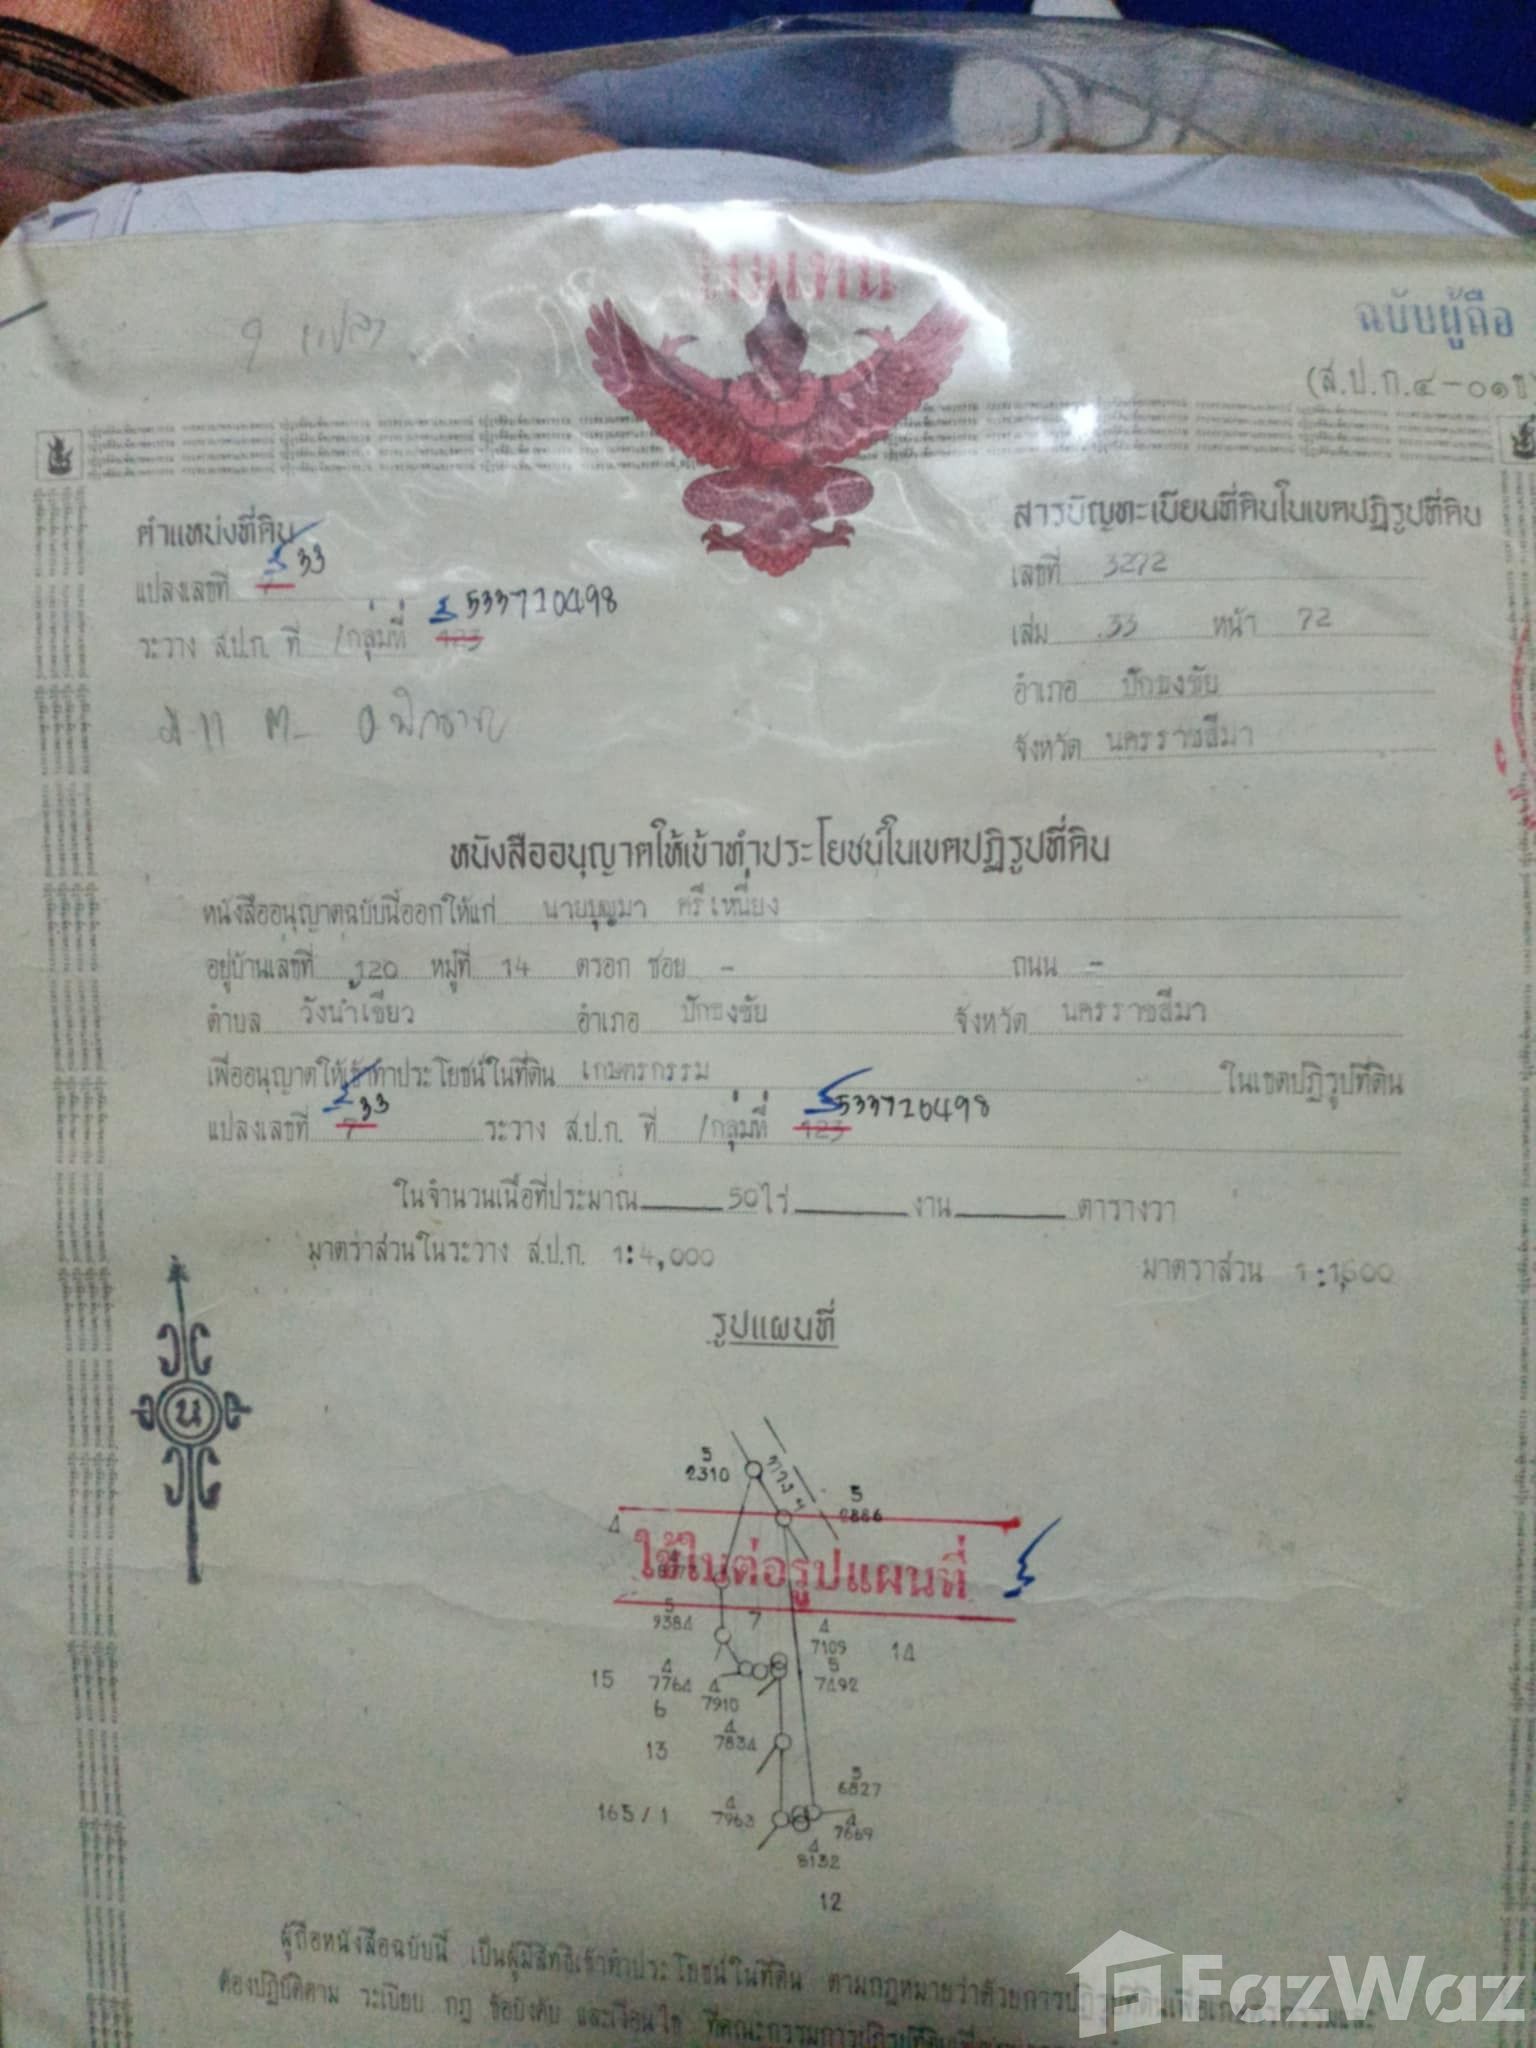 ใบแทน
ฉบับผู้ถือ
9 แปลง
(ส.ป.ก.๔-๐๑ข)
ตำแหน่งที่ดิน
สารบัญทะเบียนที่ดินในเขตปฏิรูปที่ดิน
แปลงเลขที่ 7 33
เลขที่ 3272
ระวาง ส.ป.ก. ที่ /กลุ่มที่ 123 533720498
เล่ม 33 หน้า 72
อำเภอ ปักธงชัย
จังหวัด นครราชสีมา
หนังสืออนุญาตให้เข้าทำประโยชน์ในเขตปฏิรูปที่ดิน
หนังสืออนุญาตฉบับนี้ออกให้แก่ นายบุญมา ศรีเหนี่ยง
อยู่บ้านเลขที่ 120 หมู่ที่ 14 ตรอก ซอย - ถนน -
ตำบล วังน้ำเขียว อำเภอ ปักธงชัย จังหวัด นครราชสีมา
เพื่ออนุญาตให้เข้าทำประโยชน์ในที่ดิน เกษตรกรรม ในเขตปฏิรูปที่ดิน
แปลงเลขที่ 7 33 ระวาง ส.ป.ก. ที่ /กลุ่มที่ 123 533720498
ในจำนวนเนื้อที่ประมาณ 50 ไร่ งาน ตารางวา
มาตราส่วนในระวาง ส.ป.ก. 1:4,000 มาตราส่วน 1:1,600
รูปแผนที่
น
5
2310
ทาง ฯ
5
2886
4
ใช้ใบต่อรูปแผนที่
5
9384
7
4
7109
14
15
4
7764
4
7910
5
7492
6
4
7834
13
5
6827
165/1
4
7963
4
7669
4
8132
12
ผู้ถือหนังสือฉบับนี้ เป็นผู้มีสิทธิเข้าทำประโยชน์ในที่ดิน ตามกฎหมายว่าด้วยการปฏิรูปที่ดินเพื่อเกษตรกรรมและ
ต้องปฏิบัติตาม ระเบียบ กฎ ข้อบังคับ และเงื่อนไข ที่คณะกรรมการปฏิรูปที่ดิน
FazWaz